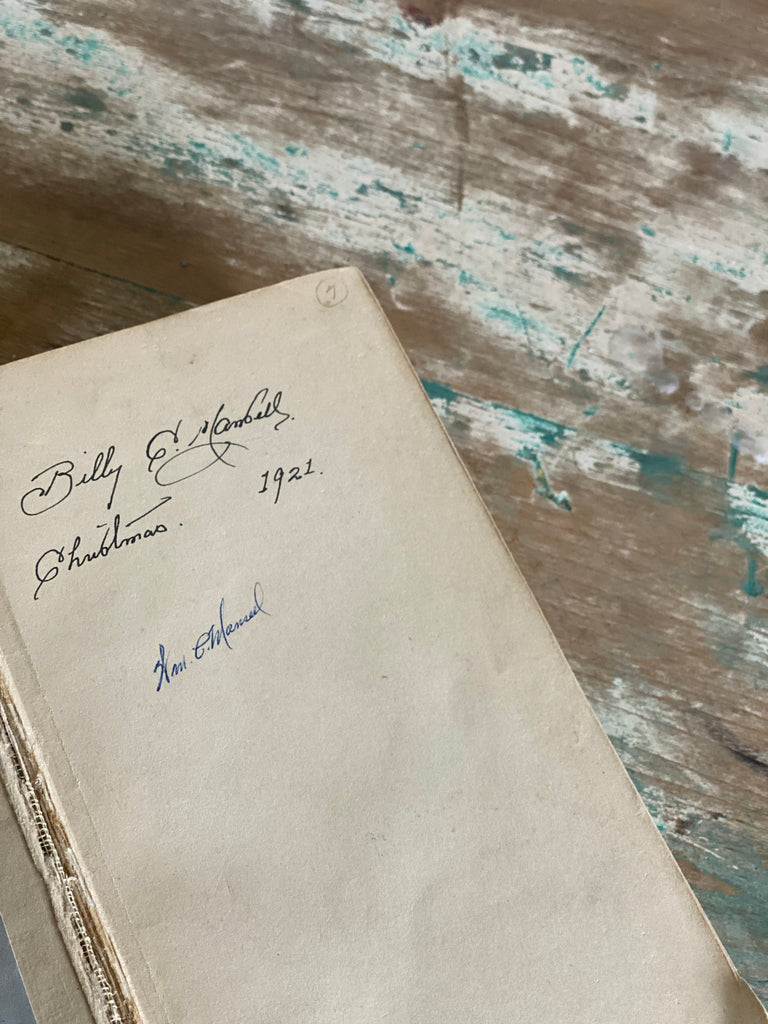 7
Billy C. Mansell.
Christmas. 1921.
Wm. C. Mansell